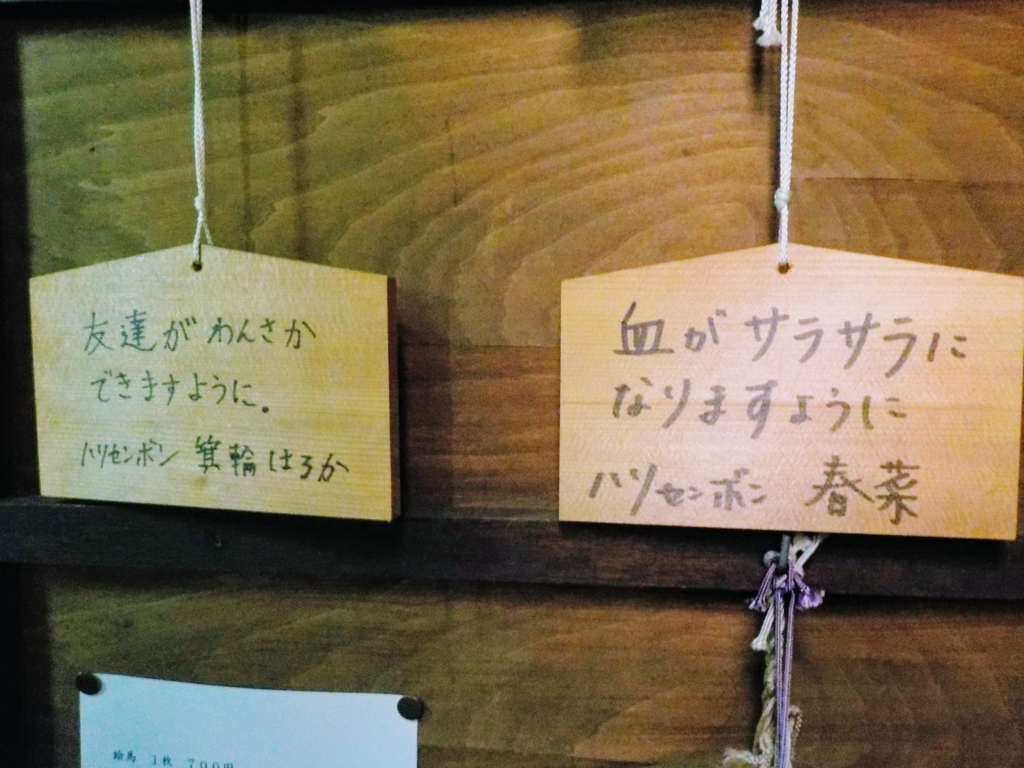 友達がわんさか
できますように。
ハリセンボン 箕輪はるか
血がサラサラに
なりますように
ハリセンボン 春菜
絵馬 1枚 700円